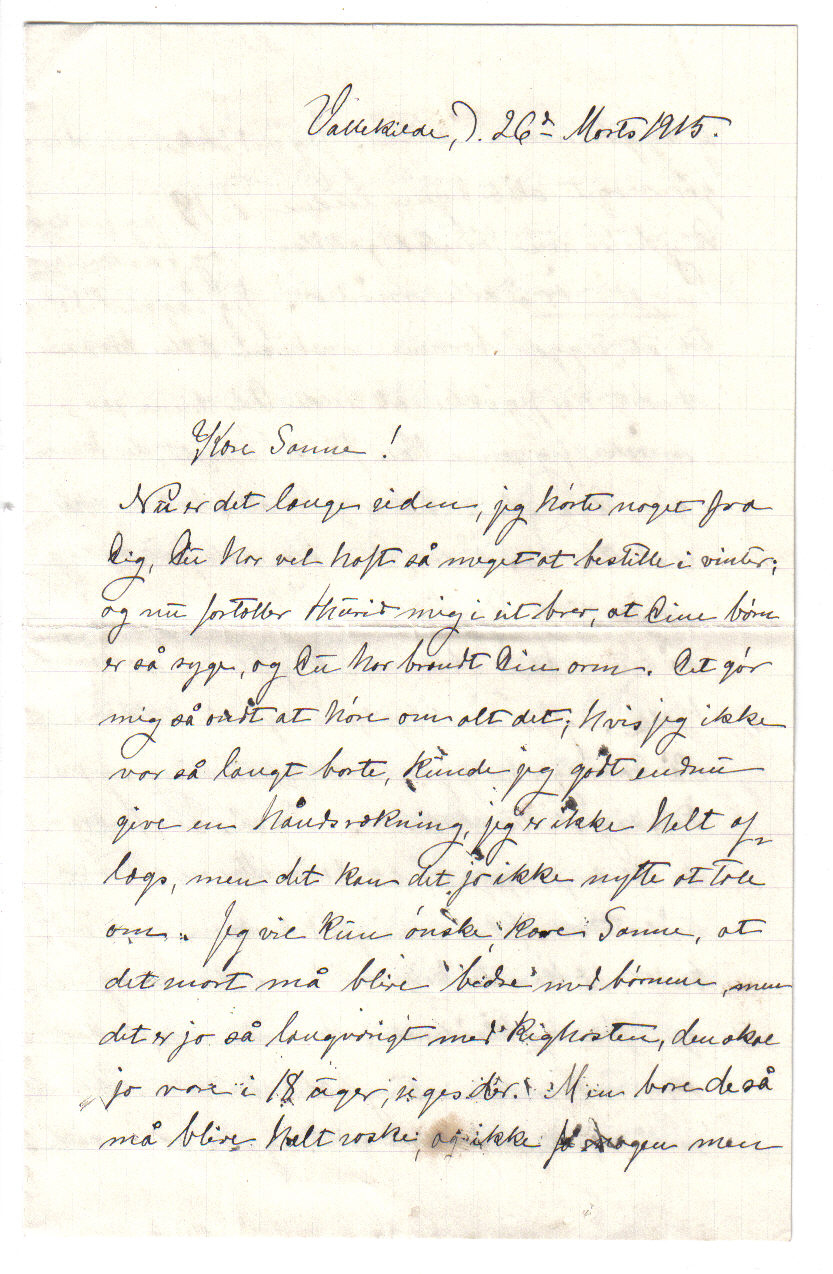 Vallekilde, D. 26d Marts 1915.
Kære Sanne!
Nu er det længe siden, jeg hørte noget fra
Dig, Du har vel haft så meget at bestille i vinter;
og nu fortæller Thurid mig i sit brev, at Dine børn
er så syge, og Du har brændt Din arm. Det gør
mig så ondt at høre om alt det; hvis jeg ikke
var så langt borte, kunde jeg godt endnu
give en håndsrækning, jeg er ikke helt af-
lægs, men det kan det jo ikke nytte at tale
om. Jeg vil kun ønske, kære Sanne, at
det snart må blive bedre med børnene, men
det er jo så langvarigt med kighosten, den skal
jo vare i 18 uger, siges der. Men bare de så
må blive helt raske, og ikke få nogen men